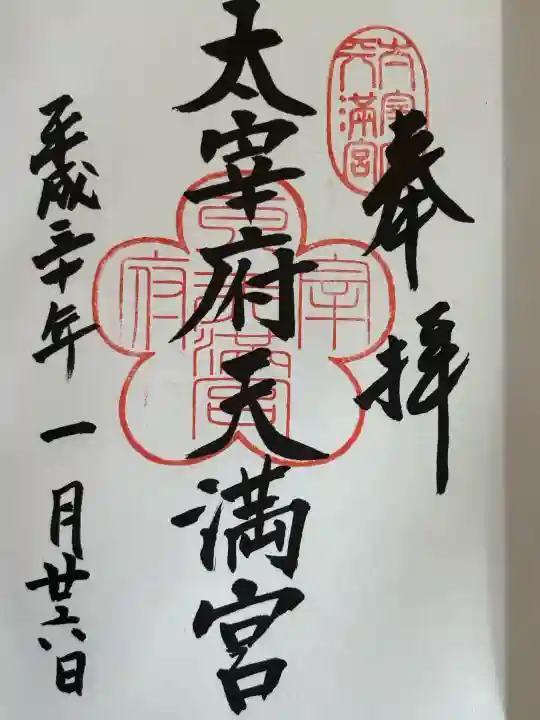 奉拝
太宰府天満宮
太宰府天満宮
太宰府天満宮
平成三十年一月廿六日